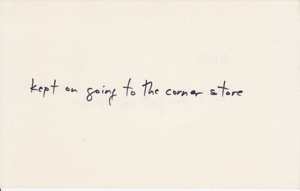 kept on going to the corner store